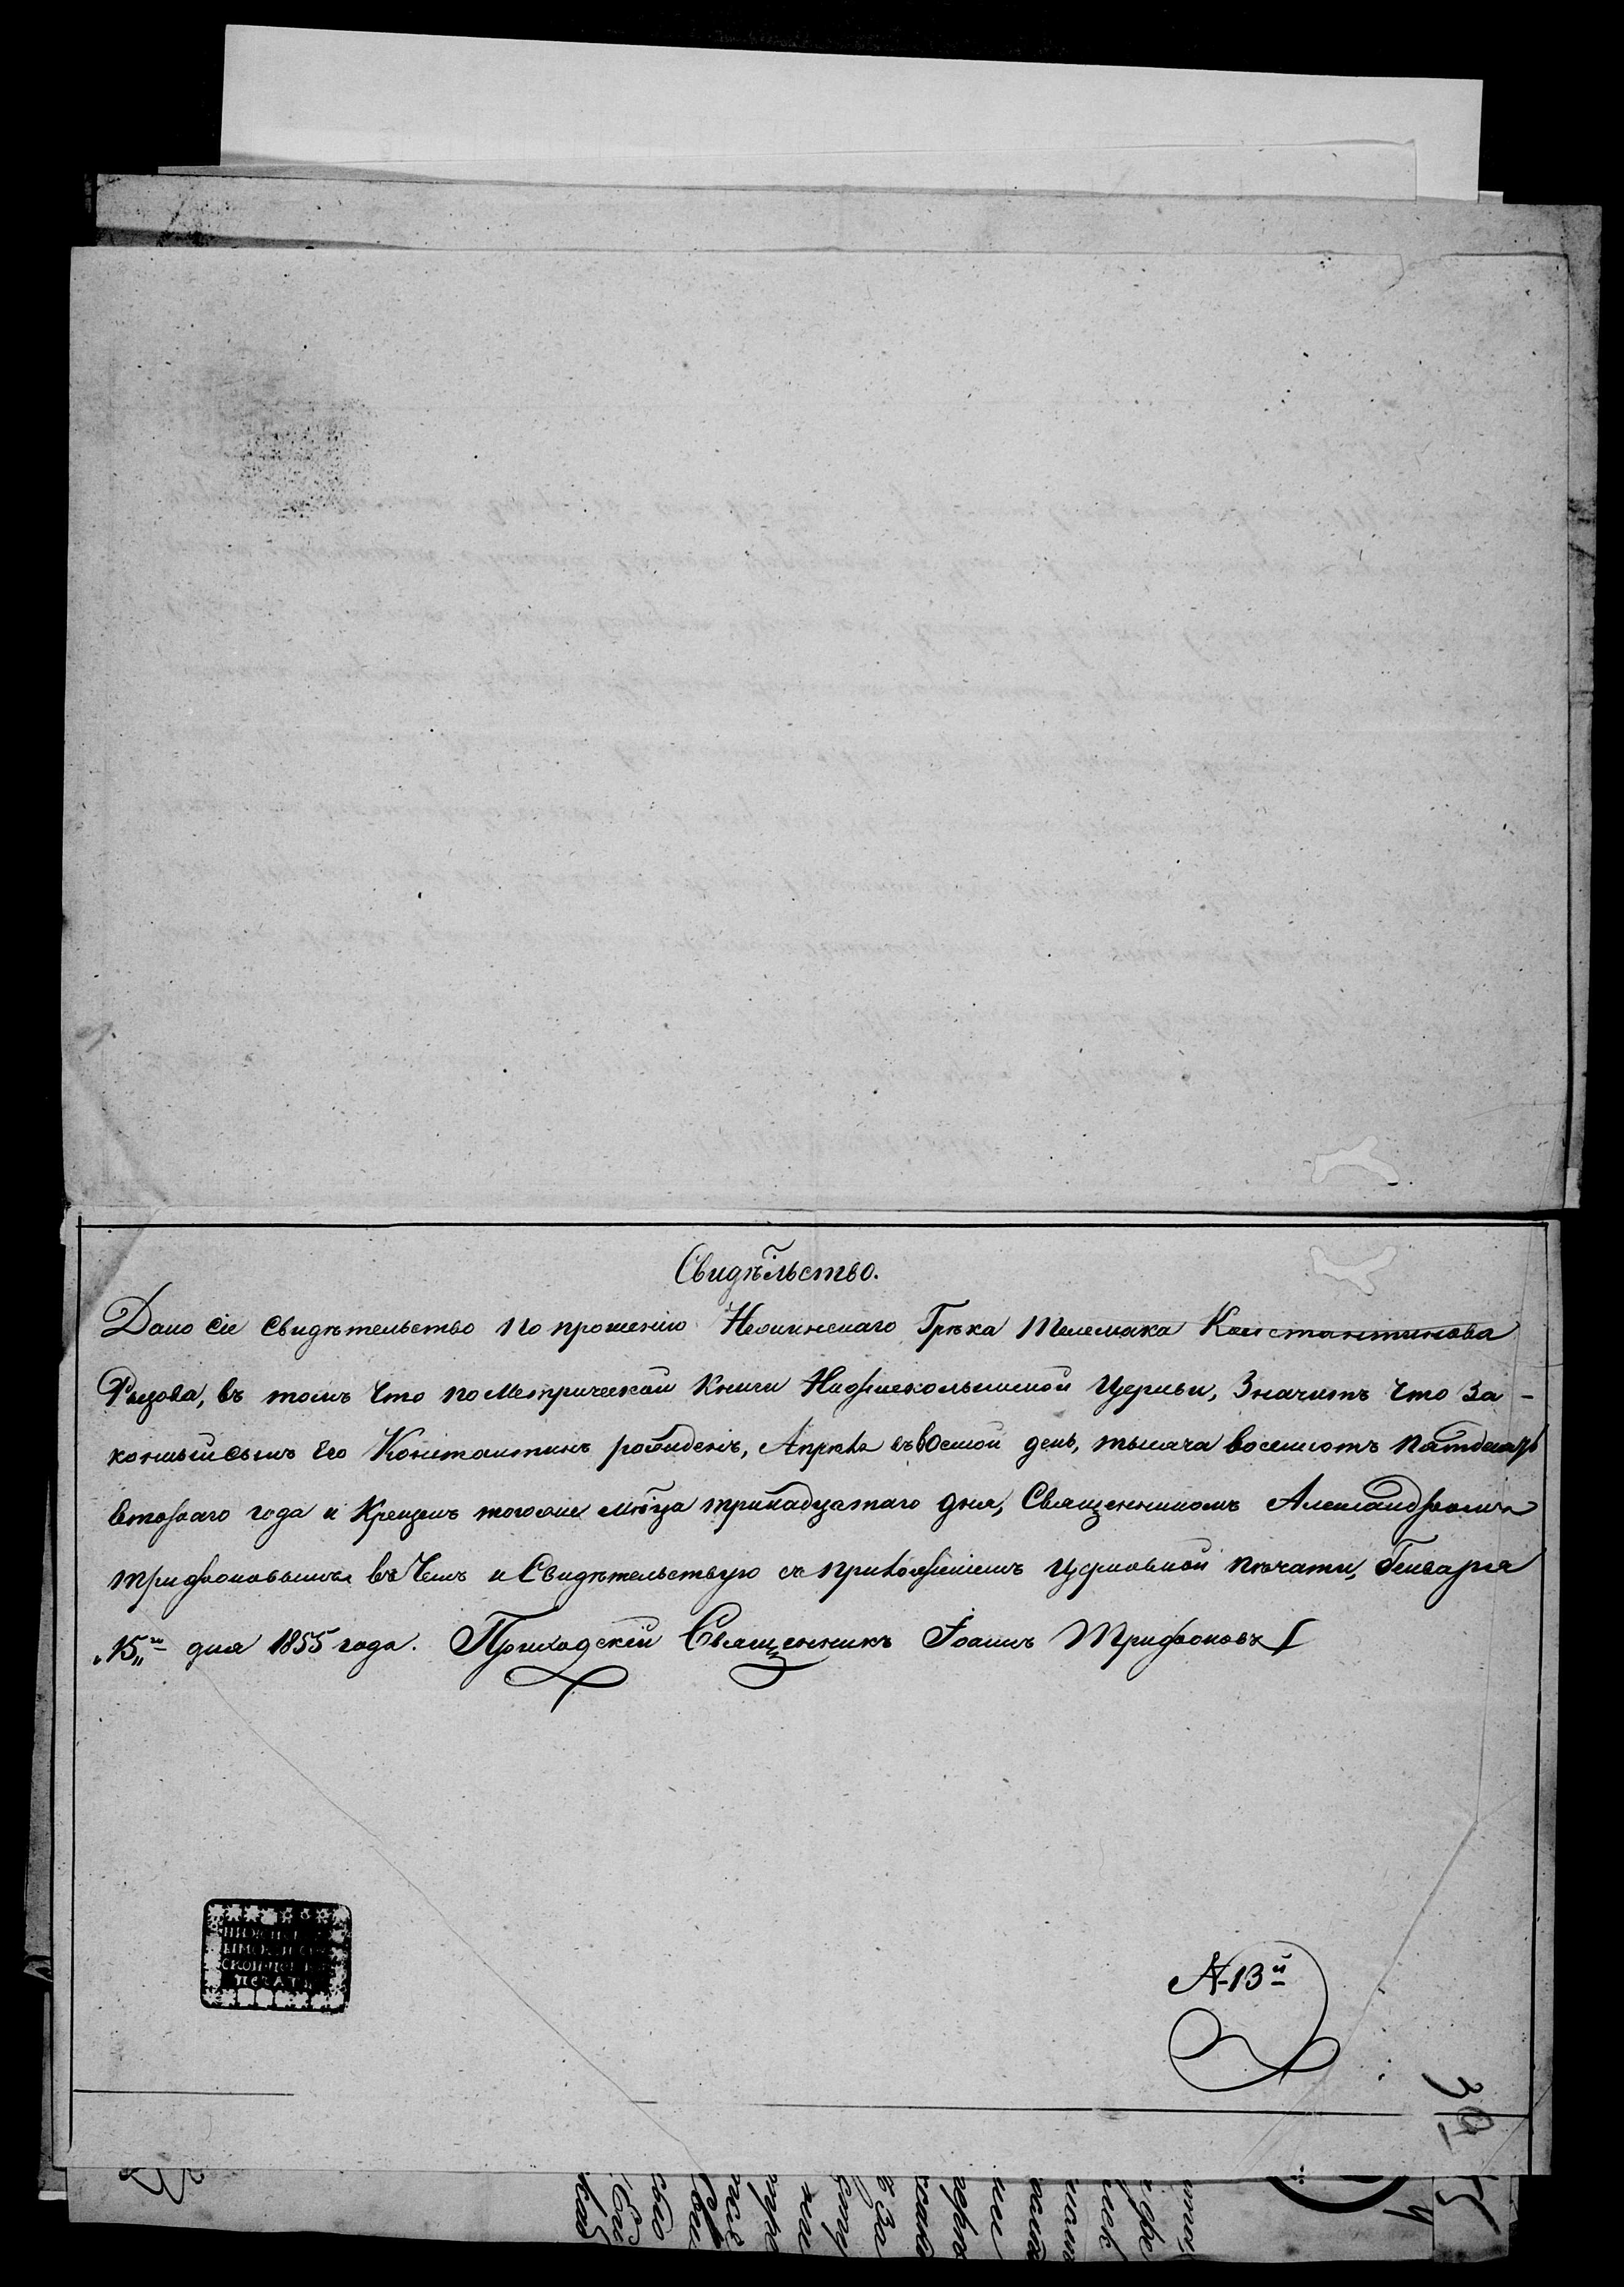 Свидѣтельство.
Дано сіе Свидѣтельство по прошенію Нежинскаго Грѣка Телемака Константинова
Ризова, въ томъ что по Метрической Книги Церкви, Значитъ что За-
конный сынъ Его Константинъ рожденъ, Апрѣля въ восмой день, тысяча восемсотъ пятдесятъ
втораго года и Крещенъ тогоже мѣсяца тринадцатаго дня, Священникомъ Александромъ
Трифоновымъ въ Чемъ и Свидѣтельствую съ приложеніемъ Церковной печати, Генваря
„15„го дня 1855 года. Приходскій Священникъ Іоаннъ Трифоновъ
№ 13й
ПЕЧАТ
39